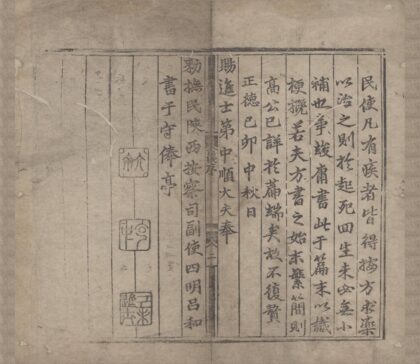 民使凡有疾者皆得按方求藥
以治之則於起死回生未必無小
補也爭竣庸書此于篇末以識
梗槩若夫方書之始末繁簡則
高公已詳於篇端矣故不復贅
正德己卯中秋日
賜進士第中順大夫奉
勑撫民陝西按察司副使四明呂和
書于守俸亭